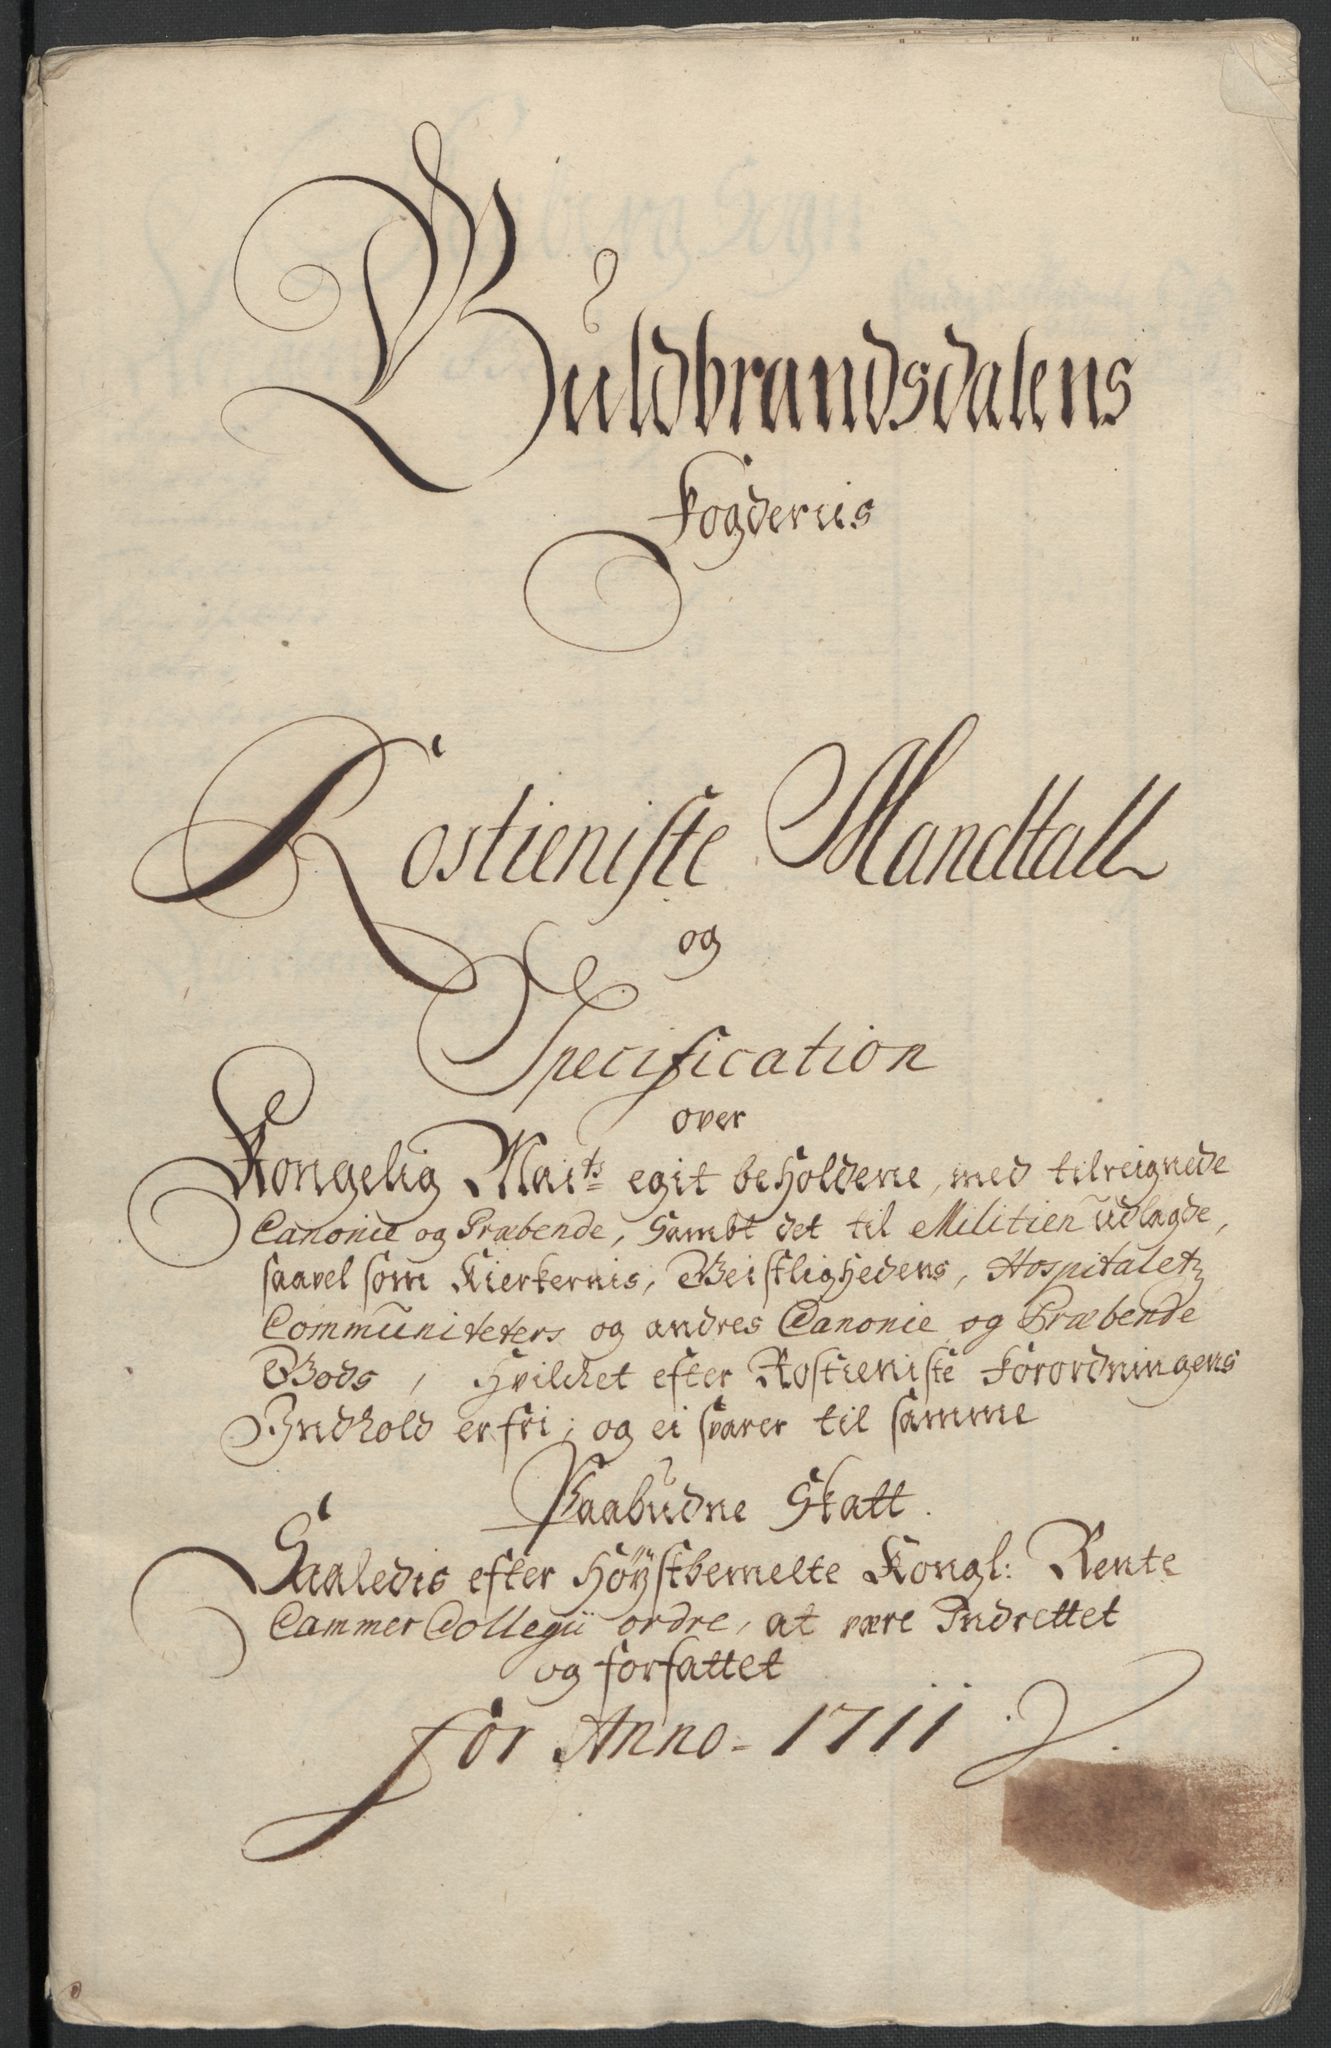 Guldbrandsdalens
Fogderiis
Rostieniste Mandtall
og
Specification
over
Kongelig Maits egit beholdene, med tilreignede
Canonie og Præbende, sambt det til Militien udlagde,
saavel som Kierkernis, Geistlighedens, Hospitaletz
Communiteters og andres Canonie og Præbende
Gods, Hvilchet efter Rostieniste Forordningens
Indhold er fri, og ei svarer til samme
Paabudne Skatt.
Saaledis efter Høystbemelte Kongl: Rente
Cammer Collegii ordre, at være Indrettet
og forfattet
for Anno- 1711